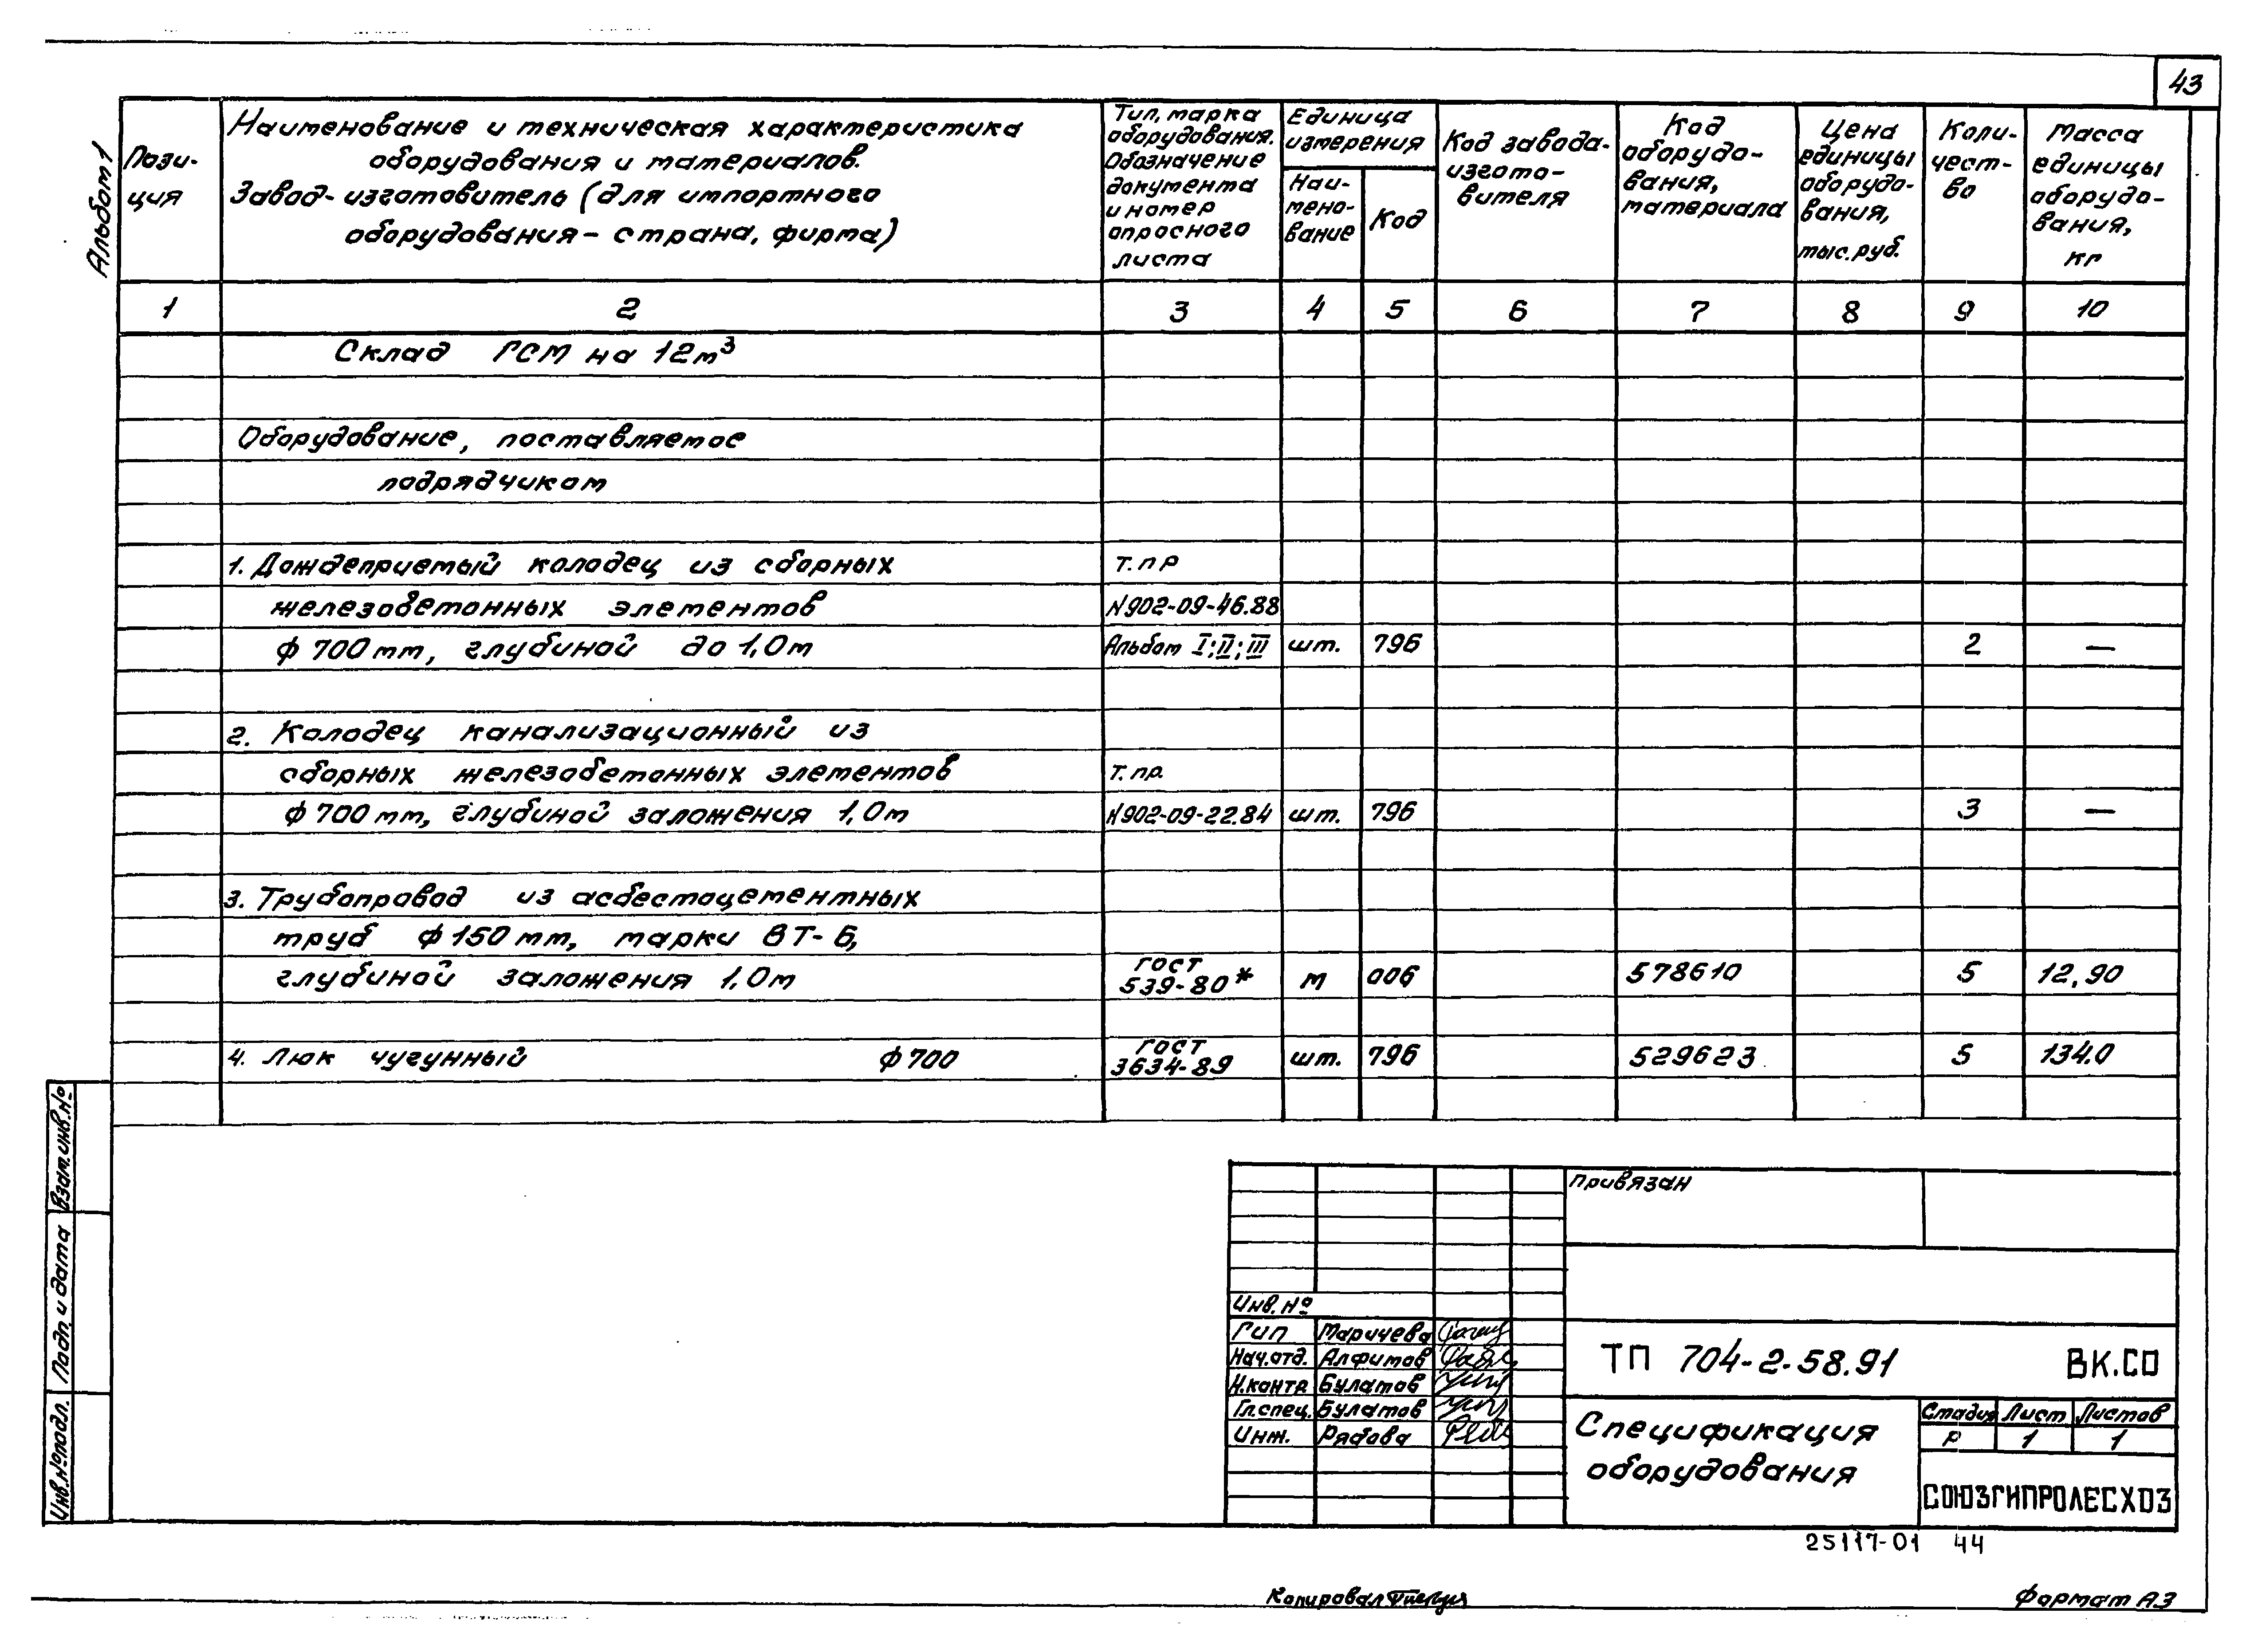 43
Альбом 1
Пози-
ция
Наименование и техническая характеристика
оборудования и материалов.
Завод-изготовитель (для импортного
оборудования - страна, фирма)
Тип, марка
оборудования.
Обозначение
документа
и номер
опросного
листа
Единица
измерения
Наи-
мено-
вание
Код
Код завода-
изгото-
вителя
Код
оборудо-
вания,
материала
Цена
единицы
оборудо-
вания,
тыс. руб.
Коли-
чест-
во
Масса
единицы
оборудо-
вания,
кг
1 2 3 4 5 6 7 8 9 10
Склад ГСМ на 12м³
Оборудование, поставляемое
подрядчиком
1. Дождеприемый колодец из сборных Т.ПР
железобетонных элементов N902-09-46.88
ф 700 мм, глубиной до 1,0м Альбом I; II; III шт. 796 2 —
2. Колодец канализационный из
сборных железобетонных элементов Т.ПР.
ф 700 мм, глубиной заложения 1,0м N902-09-22.84 шт. 796 3 —
3. Трубопровод из асбестоцементных
труб ф 150 мм, марки ВТ-Б,
глубиной заложения 1,0м ГОСТ 539-80* м 006 578610 5 12,90
4. Люк чугунный ф 700 ГОСТ 3634-89 шт. 796 529623 5 134.0
Взам. инв. №
Подп. и дата
Инв. № подл.
Привязан
Инв. №
ГИП Маричева
Нач. отд. Алфимов
Н.контр Булатов
Гл. спец. Булатов
Инж. Рябова
ТП 704-2-58.91 ВК.СО
Спецификация
оборудования
Стадия Лист Листов
Р 1 1
СОЮЗГИПРОЛЕСХОЗ
25117-01 44
Копировал
Формат А3